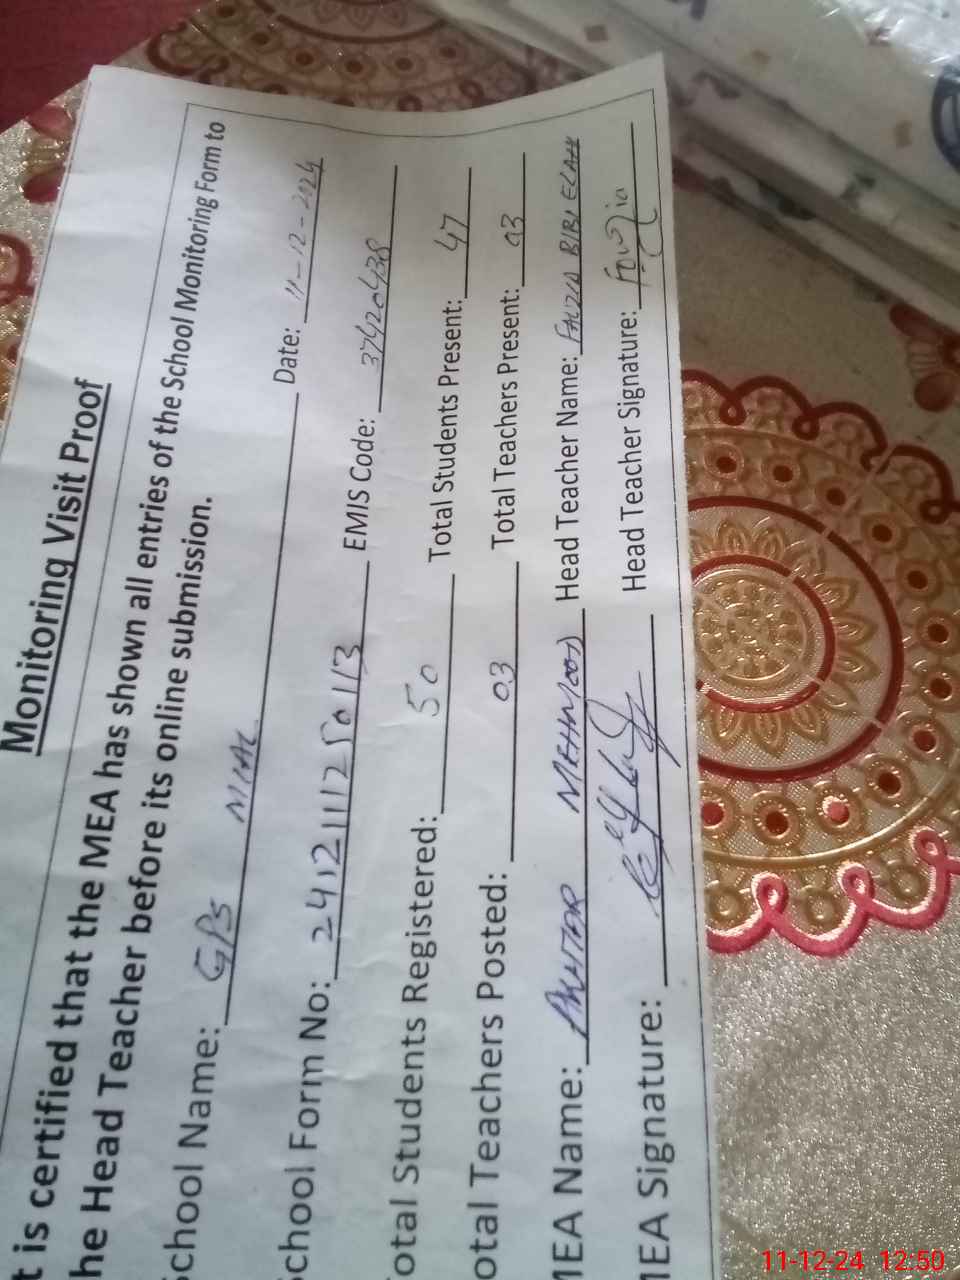 Monitoring Visit Proof
t is certified that the MEA has shown all entries of the School Monitoring Form to
he Head Teacher before its online submission.
chool Name: GPS MIAL Date: 11-12-2024
chool Form No: 2412111250113 EMIS Code: 37420438
otal Students Registered: 50 Total Students Present: 47
otal Teachers Posted: 03 Total Teachers Present: 03
MEA Name: AKHTAR MEHMOOD Head Teacher Name: FAUZIA BIBI
MEA Signature: Head Teacher Signature: Fowzia
11-12-24 12:50